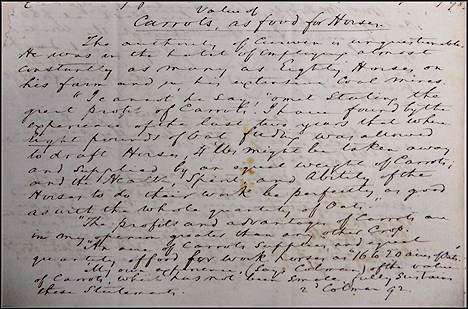 Value of
Carrots, as food for Horses.
The authority of Curwen is unquestionable.
He was in the habit of employing almost
constantly as many as Eighty Horses, on
his farm and in his extensive Coal Mines.
"I cannot he says, "omit Stating the
great profit of Carrots, I have found by the
experience of the last six years that when
eight pounds of Oat feeding was allowed
to draft Horses, 4 lbs might be taken away
and Supplied by an equal weight of Carrots;
and the Health, Spirit, and Ability of the
Horses to do their work be perfectly as good
as with the whole quantity of Oats."
"The profits and advantages of Carrots are
in my opinion greater than any other Crop.
an acre of Carrots supplies an equal
quantity of food for work horses as 16 to 20 acres of Oats.
My own experience (Says Colman) of the value
of Carrots, which has not been Small, fully Sustains
these Statements. 2 Colman 92.